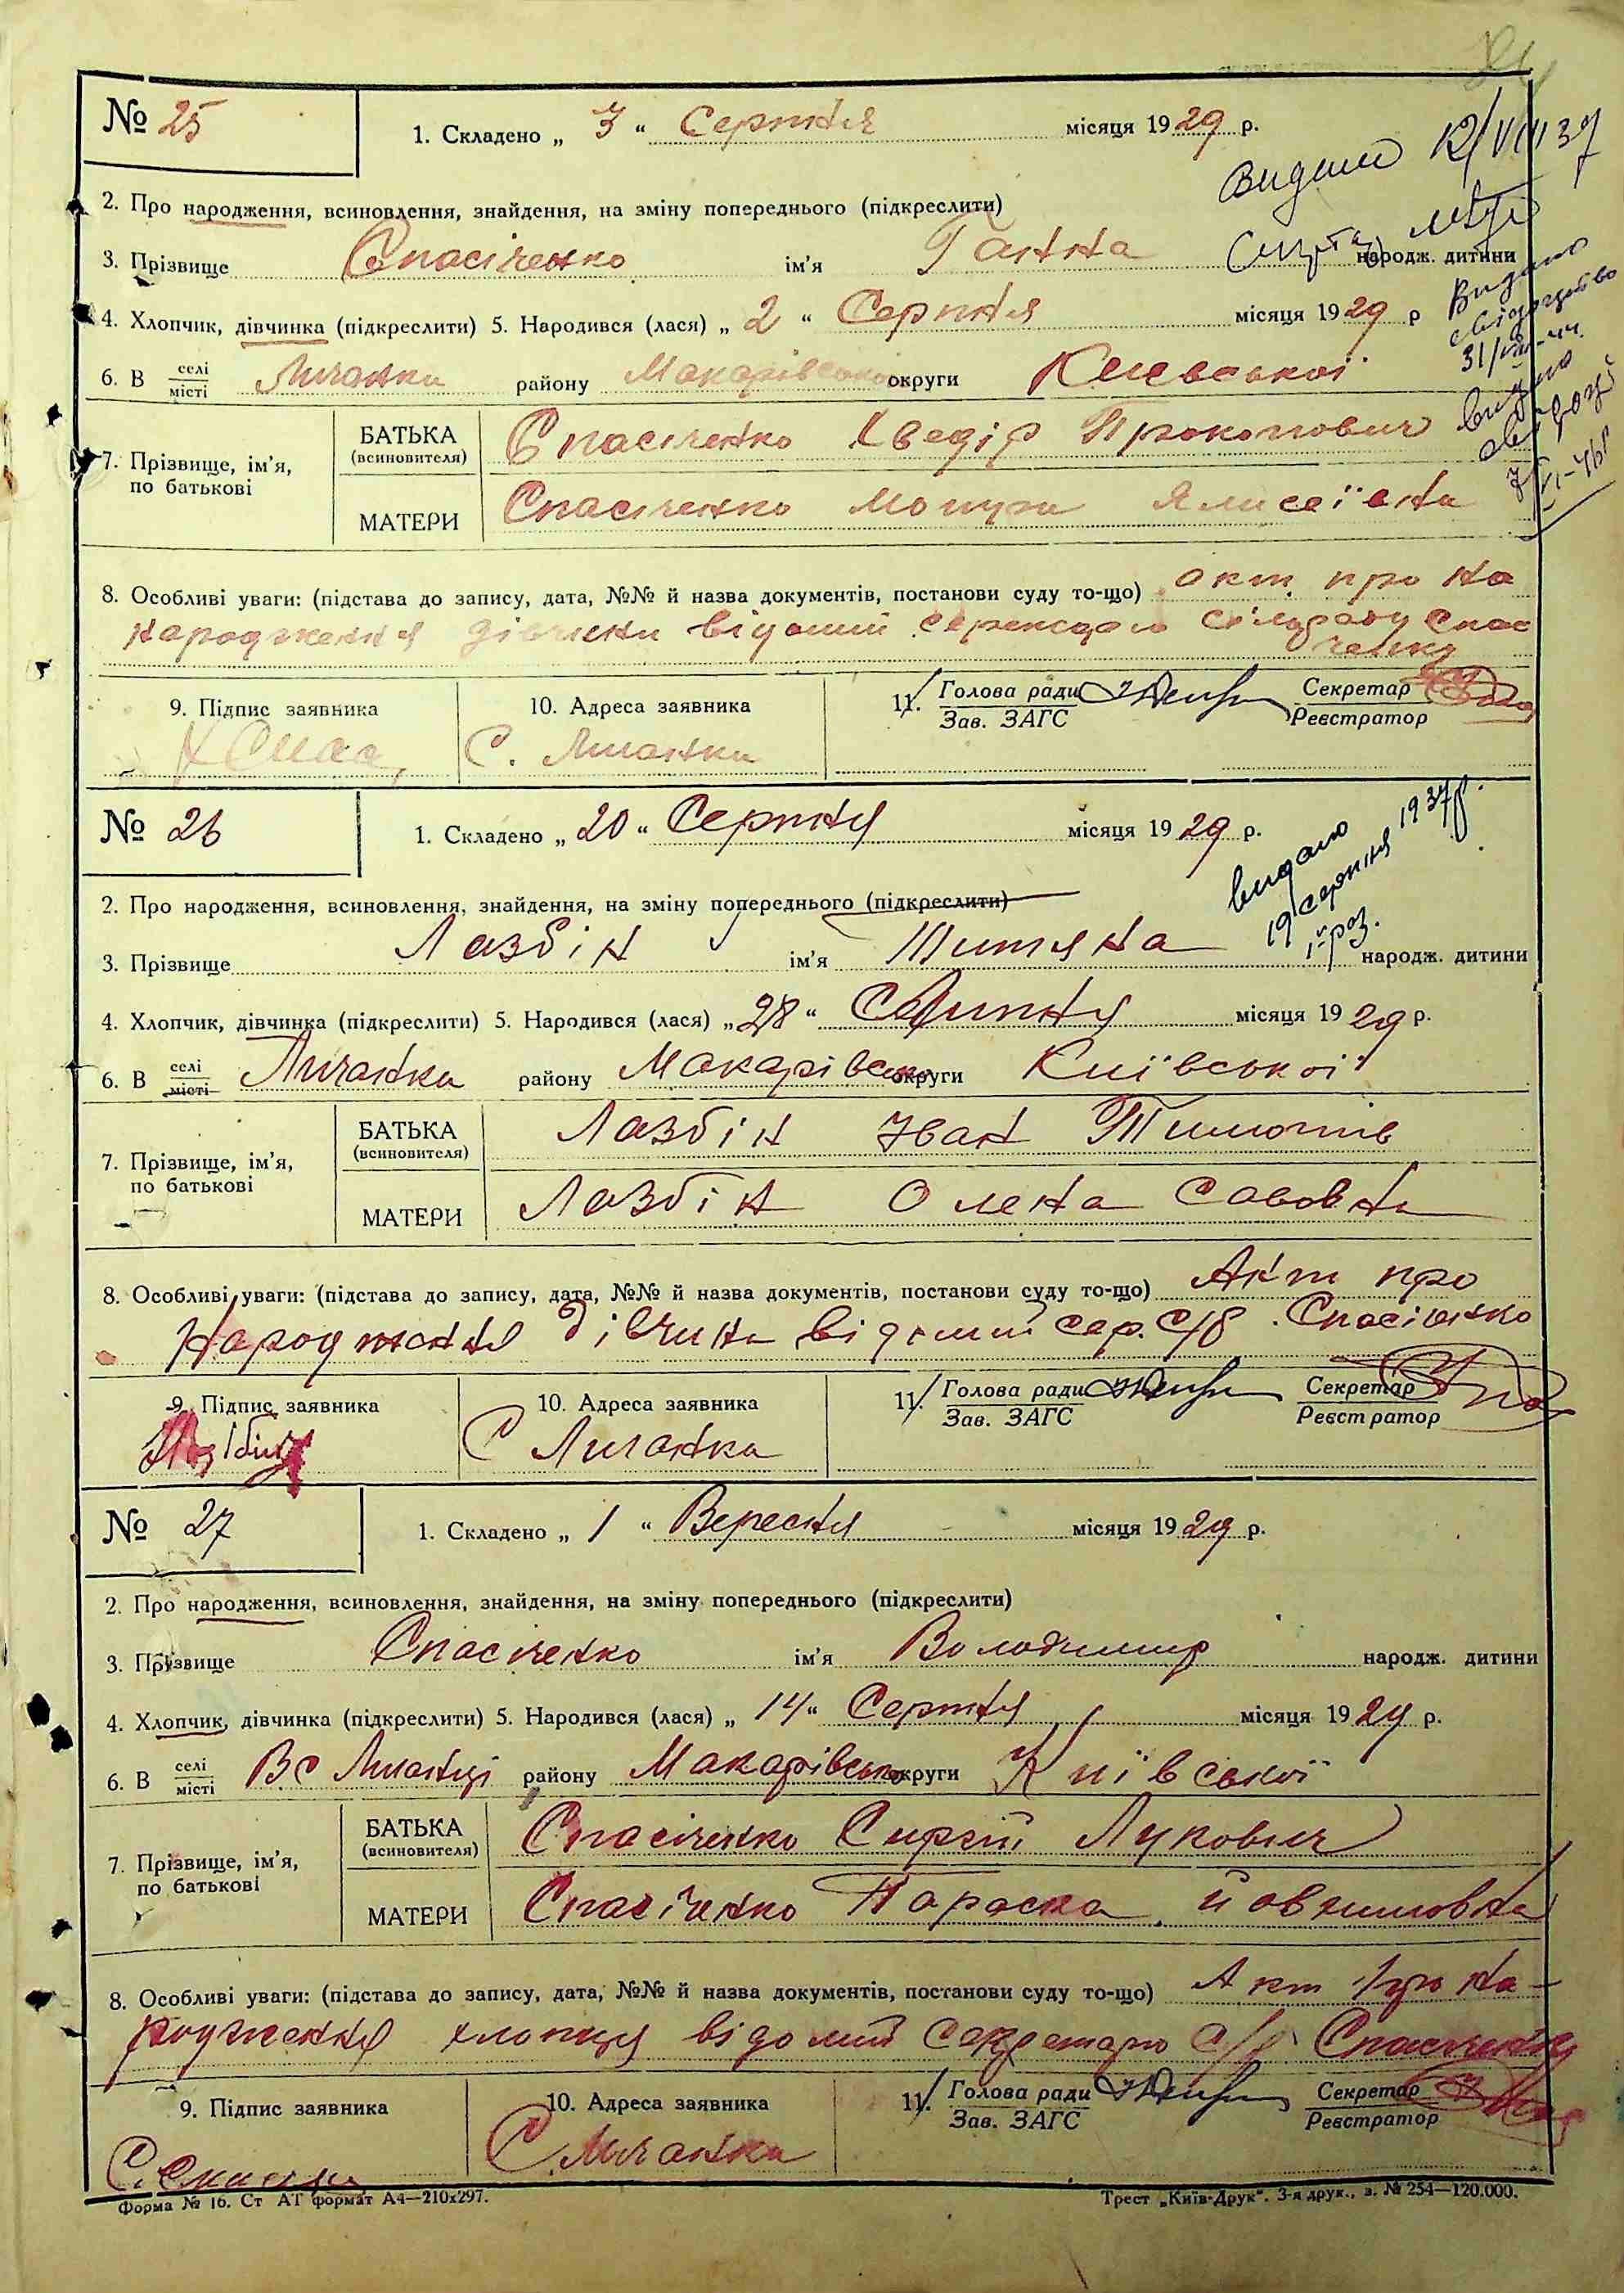 № 25
1. Складено „ 3 “ Серпня місяця 1929 р.
Видано 12/VIII 37
2. Про народження, всиновлення, знайдення, на зміну попереднього (підкреслити)
3. Прізвище Спасіченко ім'я Ганна народж. дитини
Видано
4. Хлопчик, дівчинка (підкреслити) 5. Народився (лася) „ 2 “ Серпня місяця 1929 р
31/VIII-44.
6. В селі/місті Личанки району Макарівського округи Киевської
7. Прізвище, ім'я, по батькові
БАТЬКА (всиновителя) Спасіченко Хведір Прокопович
МАТЕРИ Спасіченко Мотря Ялисеївна
8. Особливі уваги: (підстава до запису, дата, №№ й назва документів, постанови суду то-що) акт про на
народження дівчини відомий секретарю сілради Спас
ченку
9. Підпис заявника
Х Спас,
10. Адреса заявника
С. Личанка
11. Голова ради/Зав. ЗАГС
Секретар/Реєстратор
№ 26
1. Складено „ 20 “ Серпня місяця 1929 р.
видано
19 серпня 1937 р.
І-й раз.
2. Про народження, всиновлення, знайдення, на зміну попереднього (підкреслити)
3. Прізвище Лазбін ім'я Титяна народж. дитини
4. Хлопчик, дівчинка (підкреслити) 5. Народився (лася) „ 28 “ Липня місяця 1929 р.
6. В селі/місті Личанка району Макарівсько округи Київської
7. Прізвище, ім'я, по батькові
БАТЬКА (всиновителя) Лазбін Іван Тимотів
МАТЕРИ Лазбін Олена Савовна
8. Особливі уваги: (підстава до запису, дата, №№ й назва документів, постанови суду то-що) Акт про
Народження дівчини відомий сер. с/в. Спасіченко
9. Підпис заявника
10. Адреса заявника
С Личанка
11. Голова ради/Зав. ЗАГС
Секретар/Реєстратор
№ 27
1. Складено „ 1 “ Вересня місяця 1929 р.
2. Про народження, всиновлення, знайдення, на зміну попереднього (підкреслити)
3. Прізвище Спасіченко ім'я Володимир народж. дитини
4. Хлопчик, дівчинка (підкреслити) 5. Народився (лася) „ 14 “ Серпня місяця 1929 р.
6. В селі/місті В с Личанці району Макарівсько округи Київської
7. Прізвище, ім'я, по батькові
БАТЬКА (всиновителя) Спасіченко Сиргій Лукович
МАТЕРИ Спасіченко Параска Йовхимовна
8. Особливі уваги: (підстава до запису, дата, №№ й назва документів, постанови суду то-що) Акт про на-
родження хлопця відомий секретарю с/р Спасіченку
9. Підпис заявника
10. Адреса заявника
С. Личанка
11. Голова ради/Зав. ЗАГС
Секретар/Реєстратор
Форма № 16. Ст АТ формат А4—210х297.
Трест „Київ-Друк“. 3-я друк., з. № 254—120.000.